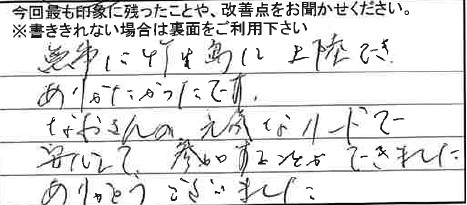 今回最も印象に残ったことや、改善点をお聞かせください。
※書ききれない場合は裏面をご利用下さい
無事に竹生島に上陸でき
ありがたかったです。
なおさんの元気なリードで
安心して参加することができました
ありがとうございました